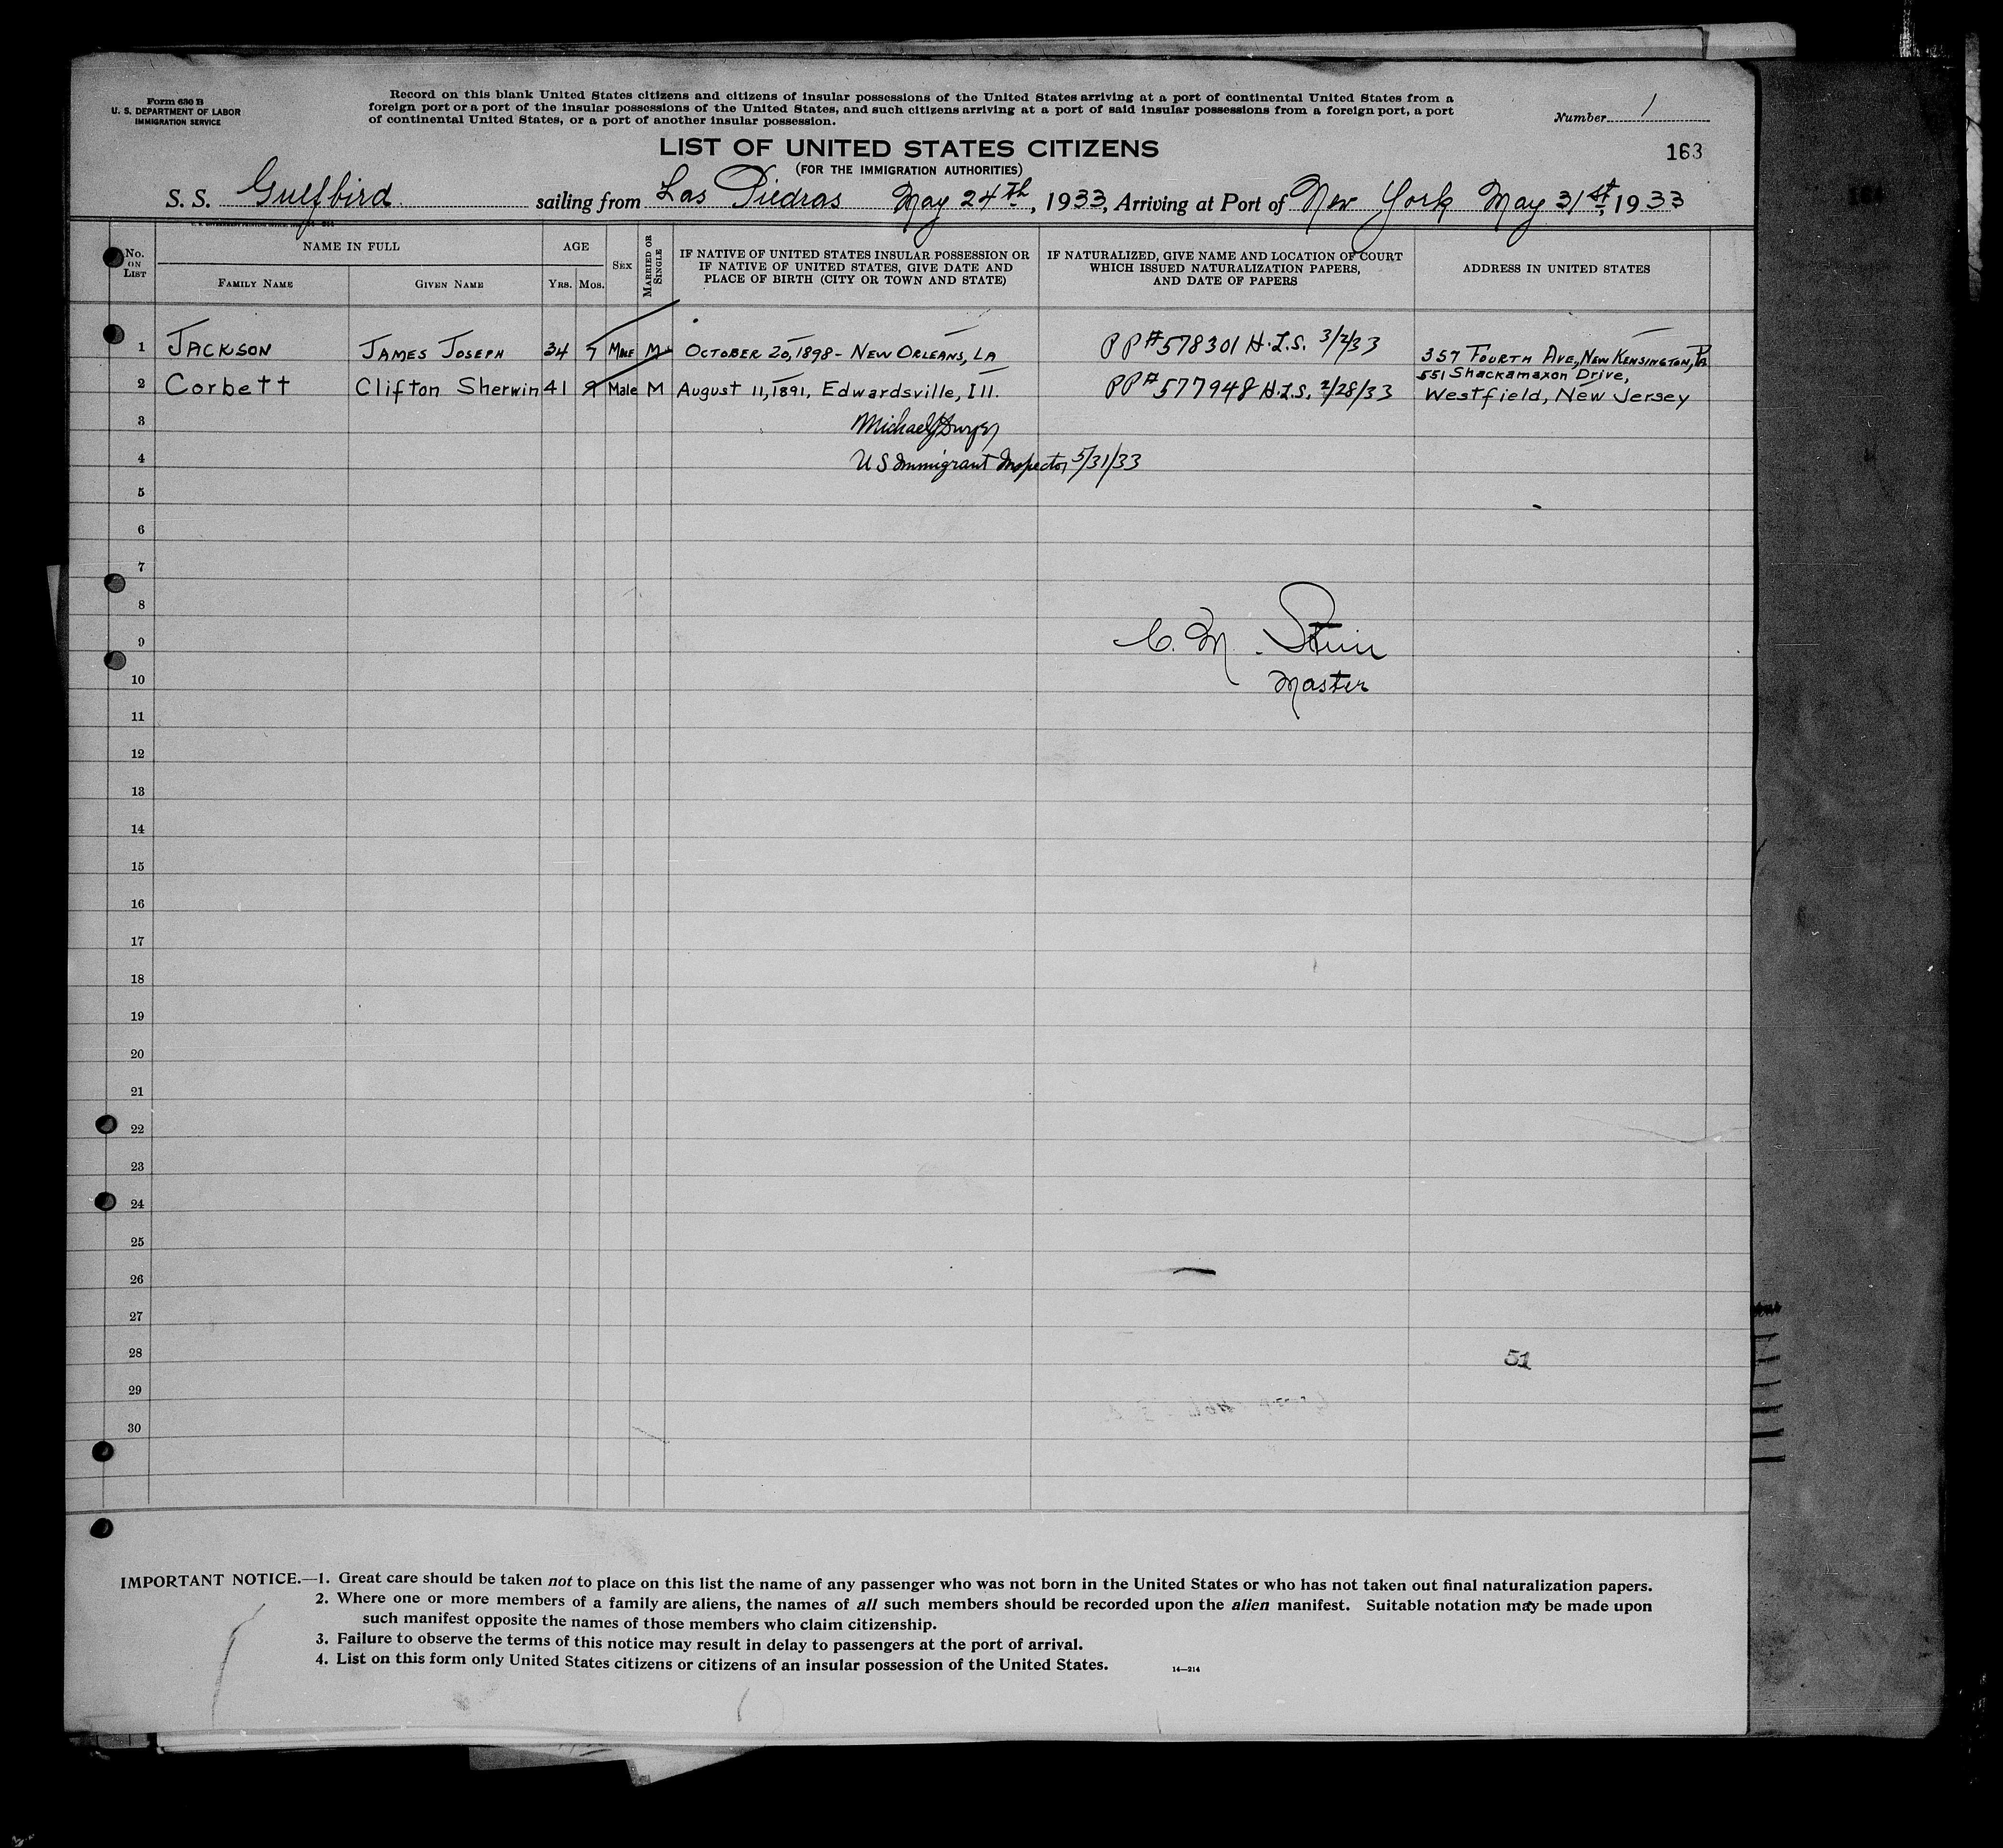 Form 630 B
U. S. DEPARTMENT OF LABOR
IMMIGRATION SERVICE
Record on this blank United States citizens and citizens of insular possessions of the United States arriving at a port of continental United States from a
foreign port or a port of the insular possessions of the United States, and such citizens arriving at a port of said insular possessions from a foreign port, a port
of continental United States, or a port of another insular possession.
Number 1
LIST OF UNITED STATES CITIZENS
163
(FOR THE IMMIGRATION AUTHORITIES)
S. S. Gulfbird sailing from Las Piedras May 24th, 1933, Arriving at Port of New York May 31st, 1933
No. ON LIST
NAME IN FULL
FAMILY NAME
GIVEN NAME
AGE
YRS. MOS.
SEX
MARRIED OR SINGLE
IF NATIVE OF UNITED STATES INSULAR POSSESSION OR
IF NATIVE OF UNITED STATES, GIVE DATE AND
PLACE OF BIRTH (CITY OR TOWN AND STATE)
IF NATURALIZED, GIVE NAME AND LOCATION OF COURT
WHICH ISSUED NATURALIZATION PAPERS,
AND DATE OF PAPERS
ADDRESS IN UNITED STATES
1 JACKSON JAMES JOSEPH 34 7 MALE M OCTOBER 20, 1898 - NEW ORLEANS, LA PP#578301 H.L.S. 3/2/33 357 FOURTH AVE, NEW KENSINGTON, PA
2 Corbett Clifton Sherwin 41 9 Male M August 11, 1891, Edwardsville, Ill. PP#577948 H.L.S. 2/28/33 551 Shackamaxon Drive,
Westfield, New Jersey
3 Michael
4 US Immigrant Inspector 5/31/33
5
6
7
8
9 C. M.
10 Master
11
12
13
14
15
16
17
18
19
20
21
22
23
24
25
26
27
28 51
29
30
IMPORTANT NOTICE.—1. Great care should be taken not to place on this list the name of any passenger who was not born in the United States or who has not taken out final naturalization papers.
2. Where one or more members of a family are aliens, the names of all such members should be recorded upon the alien manifest. Suitable notation may be made upon
such manifest opposite the names of those members who claim citizenship.
3. Failure to observe the terms of this notice may result in delay to passengers at the port of arrival.
4. List on this form only United States citizens or citizens of an insular possession of the United States.
14—214